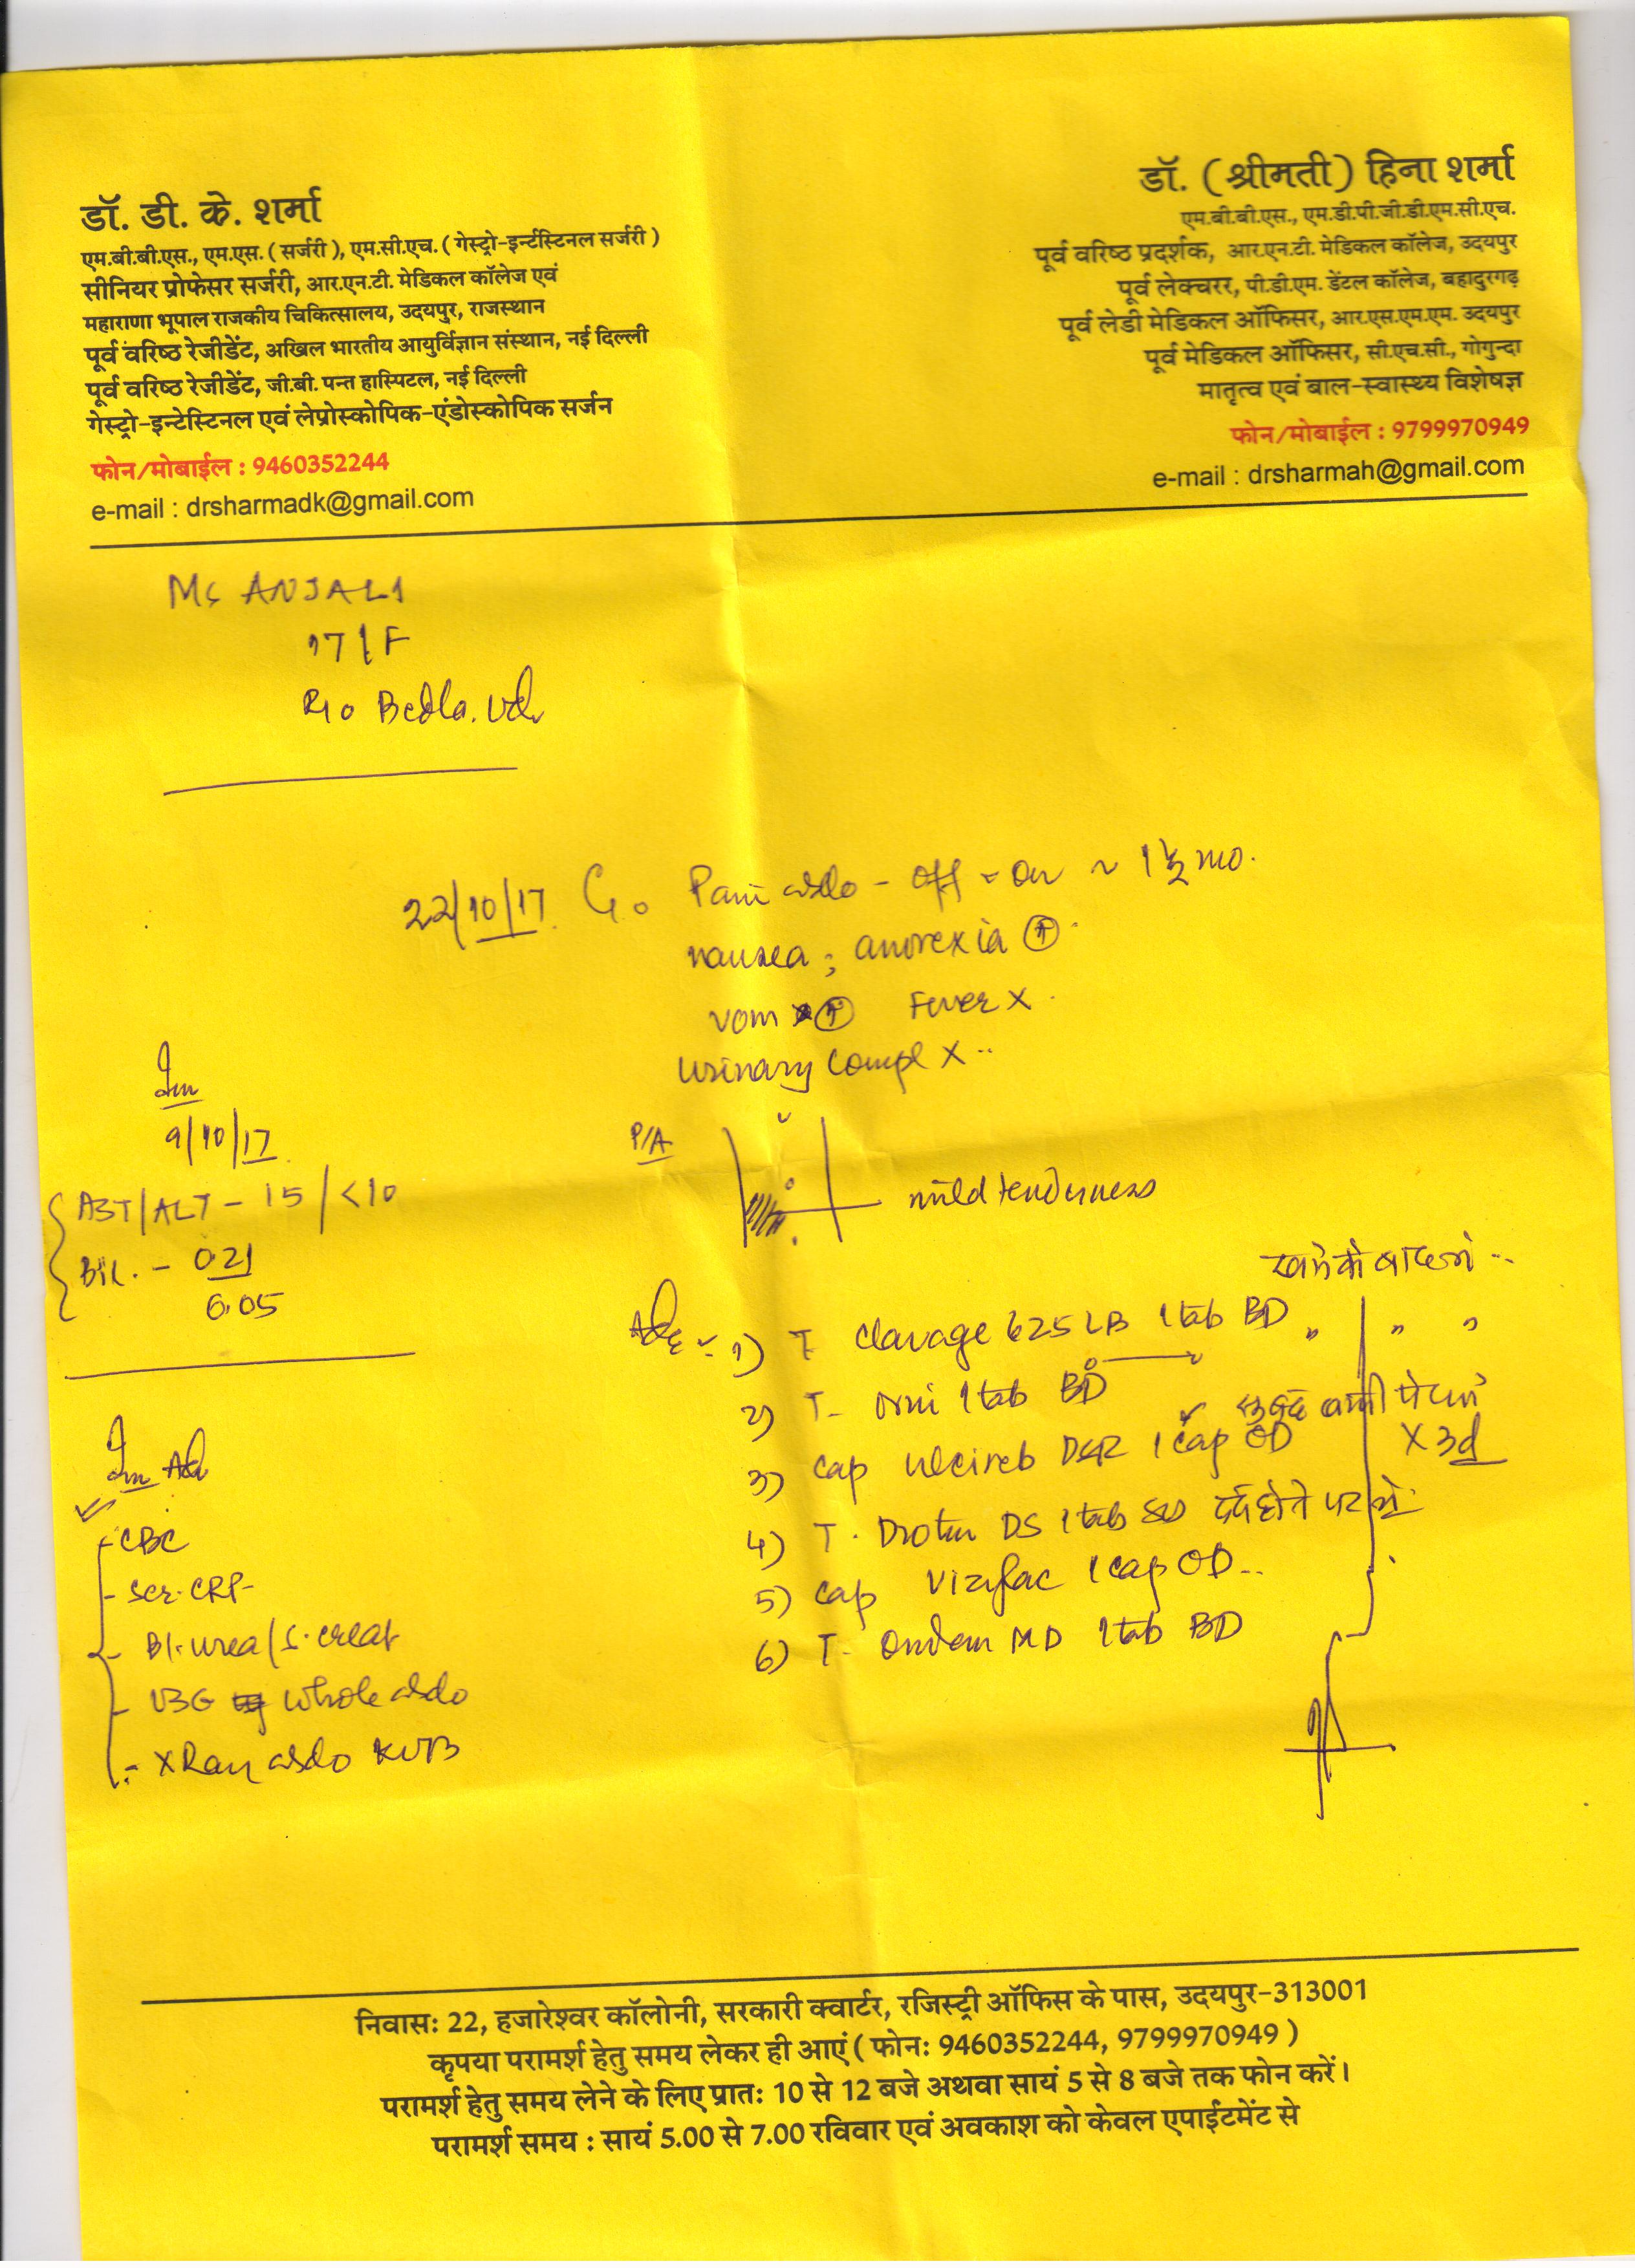 डॉ. डी. के. शर्मा
एम.बी.बी.एस., एम.एस. ( सर्जरी ), एम.सी.एच. ( गेस्ट्रो-इर्न्टस्टिनल सर्जरी )
सीनियर प्रोफेसर सर्जरी, आर.एन.टी. मेडिकल कॉलेज एवं
महाराणा भूपाल राजकीय चिकित्सालय, उदयपुर, राजस्थान
पूर्व वरिष्ठ रेजीडेंट, अखिल भारतीय आयुर्विज्ञान संस्थान, नई दिल्ली
पूर्व वरिष्ठ रेजीडेंट, जी.बी. पन्त हास्पिटल, नई दिल्ली
गेस्ट्रो-इन्टेस्टिनल एवं लेप्रोस्कोपिक-एंडोस्कोपिक सर्जन
फोन/मोबाईल : 9460352244
e-mail : drsharmadk@gmail.com
डॉ. ( श्रीमती ) हिना शर्मा
एम.बी.बी.एस., एम.डी.पी.जी.डी.एम.सी.एच.
पूर्व वरिष्ठ प्रदर्शक, आर.एन.टी. मेडिकल कॉलेज, उदयपुर
पूर्व लेक्चरर, पी.डी.एम. डेंटल कॉलेज, बहादुरगढ़
पूर्व लेडी मेडिकल ऑफिसर, आर.एस.एम.एम. उदयपुर
पूर्व मेडिकल ऑफिसर, सी.एच.सी., गोगुन्दा
मातृत्व एवं बाल-स्वास्थ्य विशेषज्ञ
फोन/मोबाईल : 9799970949
e-mail : drsharmah@gmail.com
Ms ANJALI
17/F
R/o Bedla. Udr
22/10/17 C/o Pain abdo - off - on ~ 1½ mo.
nausea ; anorexia (+)
vom (+) Fever x
urinary compl x
9/10/17
AST/ALT - 15 / <10
Bil. - 0.21
0.05
P/A
mild tenderness
खाने के बाद में
Adv 1) T Clavage 625 LB 1 tab BD " " "
2) T- Orni 1 tab BD
सुबह खाली पेट में
3) Cap DSR 1 cap OD x 3d
4) T. Drotin DS 1 tab दर्द होने पर
5) Cap Vizifac 1 cap OD
6) T- Ondem MD 1 tab BD
Adv
- CBC
- Ser. CRP
- Bl. urea / S. creat
- USG whole abdo
- X Ray abdo KUB
निवासः 22, हजारेश्वर कॉलोनी, सरकारी क्वार्टर, रजिस्ट्री ऑफिस के पास, उदयपुर-313001
कृपया परामर्श हेतु समय लेकर ही आएं ( फोनः 9460352244, 9799970949 )
परामर्श हेतु समय लेने के लिए प्रातः 10 से 12 बजे अथवा सायं 5 से 8 बजे तक फोन करें।
परामर्श समय : सायं 5.00 से 7.00 रविवार एवं अवकाश को केवल एपाईटमेंट से